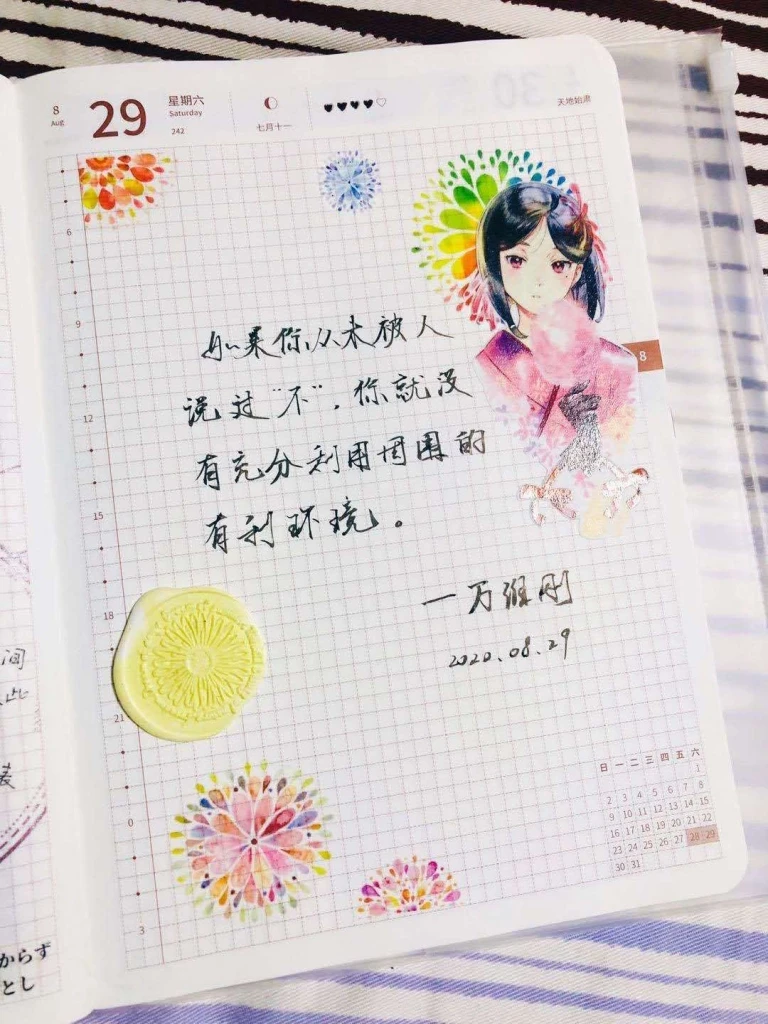 8
Aug
29
星期六
Saturday
242
七月十一
天地始肃
6
9
12
15
18
21
0
3
8
如果你从未被人
说过“不”，你就没
有充分利用周围的
有利环境。
一万维刚
2020.08.29
日 一 二 三 四 五 六
1
2 3 4 5 6 7 8
9 10 11 12 13 14 15
16 17 18 19 20 21 22
23 24 25 26 27 28 29
30 31
30
间
此
からず
とし